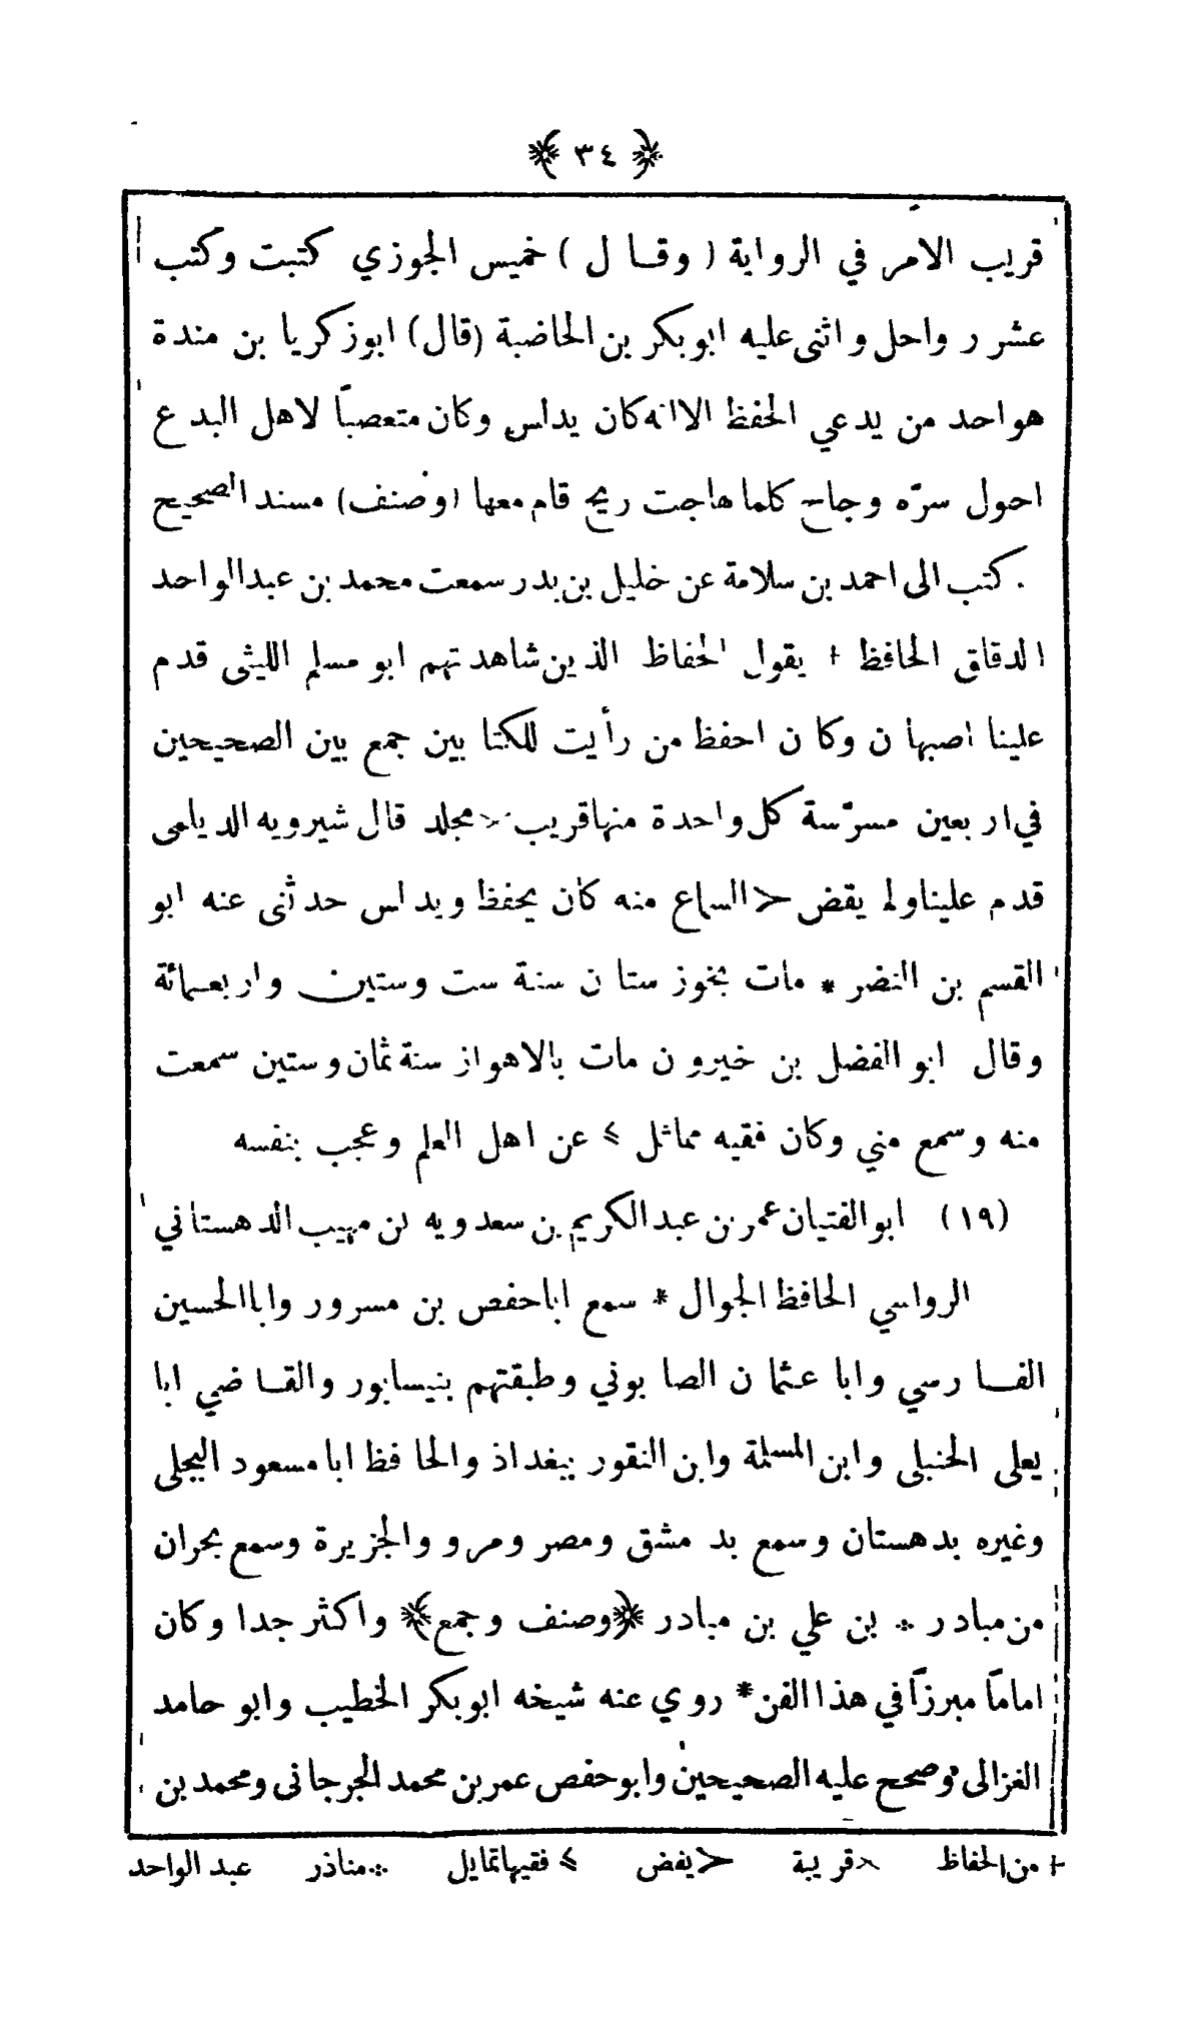 ﴿ ٣٤ ﴾
قريب الامر في الرواية ( وقال ) خميس الجوزي كتبت وكتب
عشر رواحل واثنى عليه ابوبكر بن الحاضبة (قال) ابوزكريا بن مندة
هواحد من يدعي الحفظ الاانه كان يدلس وكان متعصباً لاهل البدع
احول سرّه وجاح كلما هاجت ريح قام معها (وصنف) مسند الصحيح
كتب الى احمد بن سلامة عن خليل بن بدر سمعت محمد بن عبدالواحد
الدقاق الحافظ + يقول الحفاظ الذين شاهدتهم ابو مسلم الليثى قدم
علينا اصبهان وكان احفظ من رأيت للكتابين جمع بين الصحيحين
في اربعين مسرّسة كل واحدة منها قريب × مجلد قال شيرويه الديلمى
قدم علينا ولم يقض < السماع منه كان يحفظ ويدلس حدثنى عنه ابو
القسم بن النضر * مات بخوزستان سنة ست وستين واربعمائة
وقال ابو الفضل بن خيرون مات بالاهواز سنة ثمان وستين سمعت
منه وسمع مني وكان فقيه مماثل ⩽ عن اهل العلم وعجب بنفسه
(١٩) ابوالفتيان عمر بن عبدالكريم بن سعدويه بن مهيب الدهستاني
الرواسي الحافظ الجوال * سمع اباحفص بن مسرور واباالحسين
الفارسي وابا عثمان الصابوني وطبقتهم بنيسابور والقاضي ابا
يعلى الحنبلى وابن المسلمة وابن النقور ببغداذ والحافظ ابا مسعود البجلى
وغيره بدهستان وسمع بدمشق ومصر ومرو والجزيرة وسمع بحران
من مبادر ⁘ بن علي بن مبادر ﴿وصنف وجمع﴾ واكثر جدا وكان
اماماً مبرزاً في هذا الفن * روي عنه شيخه ابوبكر الخطيب وابو حامد
الغزالى وصحح عليه الصحيحين وابوحفص عمر بن محمد الجرجانى ومحمد بن
+ من الحفاظ × قريبة < يفض ⩽ فقيها تمايل ⁘ مناذر عبد الواحد